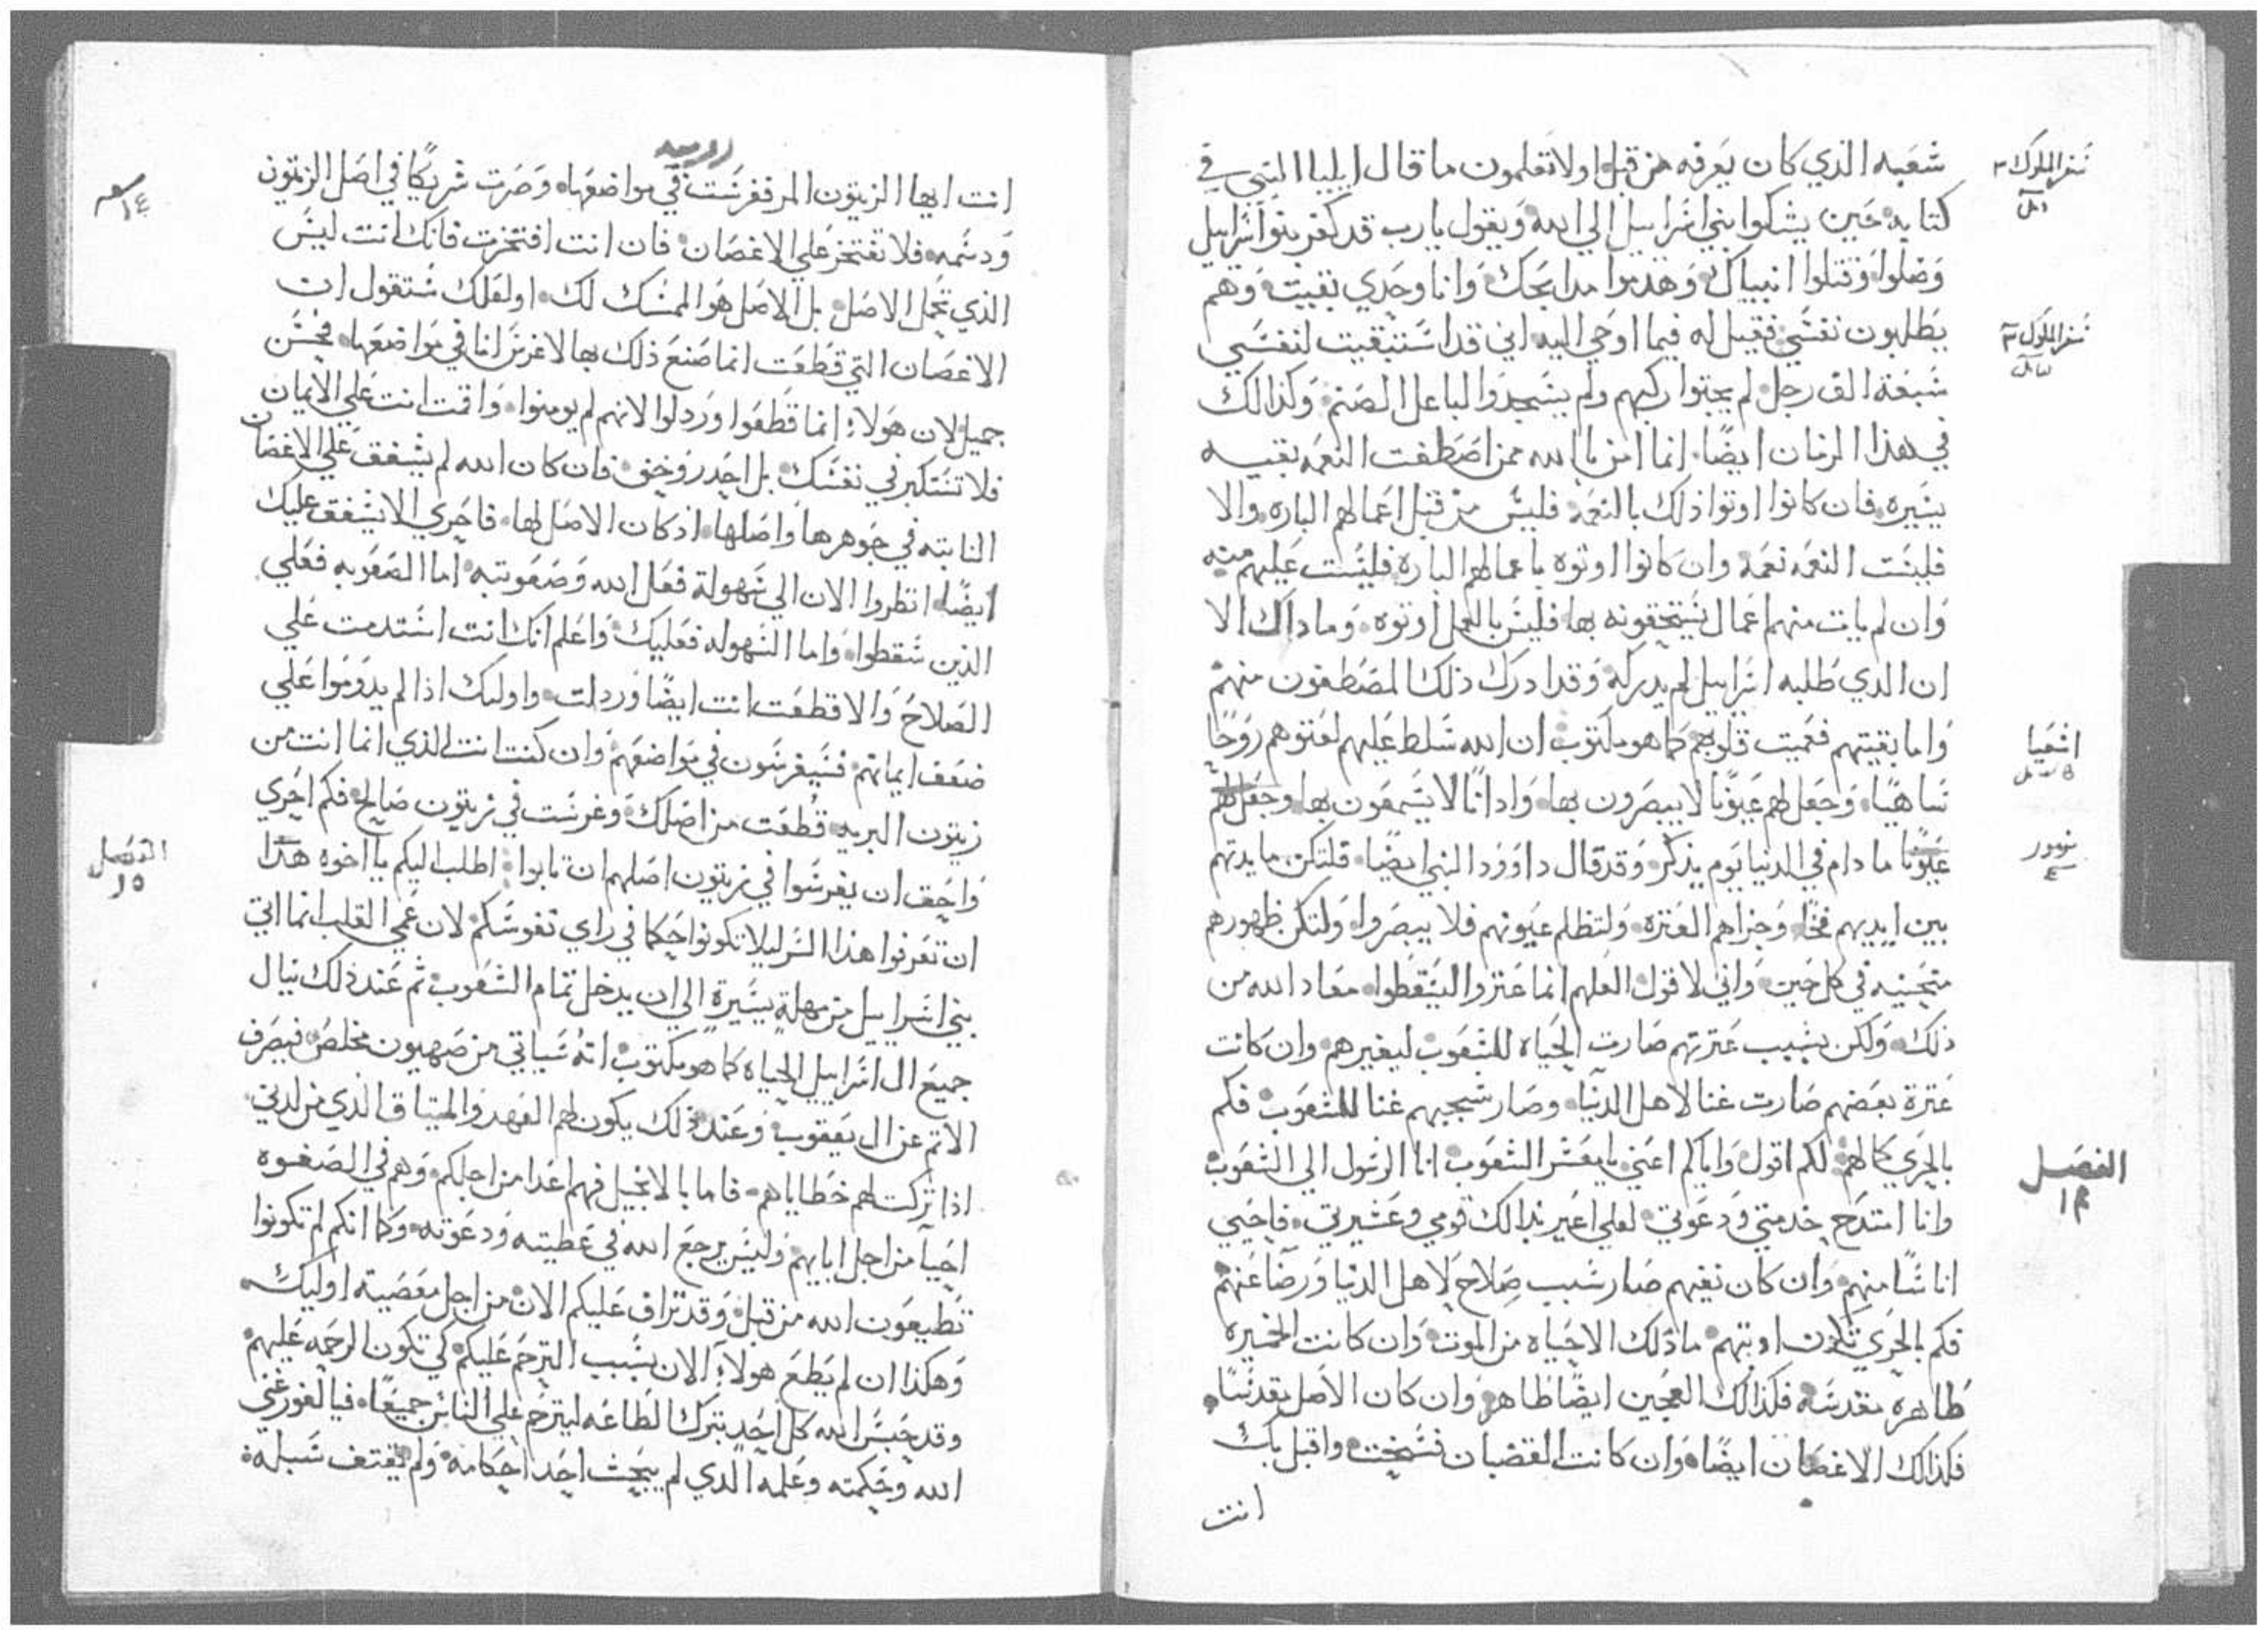 شعبه الذي كان يعرفه من قبل اولا تعلمون ما قال ايليا النبي في
سفر الملوك ٣
كتابه حين يشكوا بني اسراييل الي الله ويقول يارب قد كفر بنوا اسراييل
وضلوا وقتلوا انبياك وهدموا مدابحك وانا وحدي بقيت وهم
يطلبون نفسي فقيل له فيما اوحي اليه اني قد استبقيت لنفسي
سفر الملوك ٣
سبعة الف رجل لم يجثوا ركبهم ولم يسجدوا لباعل الصنم وكذالك
في هذا الزمان ايضًا انما امن بالله ممن اصطفت النعمه بقيه
يسيره فان كانوا اوتوا ذلك بالنعمه فليس من قبل اعمالهم الباره والا
فليست النعمه نعمه وان كانوا اوتوه باعمالهم الباره فليست عليهم منه
وان لم يات منهم اعمال يستحقونه بها فليس بالعمل اوتوه وما داك الا
ان الذي طلبه اسراييل لم يدركه وقد ادرك ذلك المصطفون منهم
واما بقيتهم فعميت قلوبهم كما هو مكتوب ان الله سلط عليهم لعتوهم روحًا
اشعيا
ساهيًا وجعل لهم عيونًا لا يبصرون بها وادانًا لا يسمعون بها وجعل لهم
عيونًا ما دام في الدنيا يوم يذكر وقد قال داوود النبي ايضًا فلتكن مايدتهم
زبور
بين ايديهم فخًا وجزاهم العتره ولتظلم عيونهم فلا يبصروا ولتكن ظهورهم
منحنيه في كل حين واني لا قول العلهم انما عتروا ليسقطوا معاد الله من
ذلك ولكن بسبب عترتهم صارت الحياه للشعوب ليغيرهم وان كانت
عترة بعضهم صارت غنا لاهل الدنيا وصار شجبهم غنا للشعوب فكم
بالحري كمالهم لكم اقول واياكم اعني يا معشر الشعوب انا الرسول الي الشعوب
الفصل
١٣
وانا امتدح خدمتي ودعوتي لعلي اغير بذالك قومي وعشيرتي فاحيي
اناسًا منهم وان كان نفيهم صار سبب صلاح لاهل الدنيا ورضا عنهم
فكم بالحري تكون اوبتهم ما ذلك الا حياه من الموت وان كانت الخميره
طاهره مقدسه فكذالك العجين ايضًا طاهر وان كان الاصل مقدسًا
فكذالك الاغصان ايضًا وان كانت القضبان فسخت واقبل بك
انت
انت ايها الزيتون المر فغرست في مواضعها وصرت شريكًا في اصل الزيتون
١٤
ودسمه فلا تفتخر علي الاغصان فان انت افتخرت فانك انت ليس
الذي تحمل الاصل بل الاصل هو الممسك لك اولعلك ستقول ان
الاغصان التي قطعت انما صنع ذلك بها لاغرس انا في مواضعها فحسن
جميل لان هولاء انما قطعوا وردلوا لانهم لم يومنوا واقمت انت علي الايمان
فلا تستكبر في نفسك بل احدر وخف فان كان الله لم يشفق علي الاغصان
النابته في جوهرها واصلها اذ كان الاصل لها فاحري الا يشفق عليك
ايضًا انظروا الان الي سهولة فعل الله وصعوبته اما الصعوبه فعلي
الذين سقطوا واما السهوله فعليك واعلم انك انت استدمت علي
الصلاح والا قطعت انت ايضًا وردلت واوليك اذا لم يدوموا علي
ضعف ايمانهم فسيغرسون في مواضعهم وان كنت انت الذي انما انت من
زيتون البريه قُطعت من اصلك وغرست في زيتون صالح فكم احري
واحق ان يغرسوا في زيتون اصلهم ان تابوا اطلب اليكم يا اخوه هذا
الفصل
١٥
ان تعرفوا هذا السر ليلا تكونوا حكما في راي نفوسكم لان عمي القلب انما اتي
بني اسراييل من مهلةٍ يسيرة الي ان يدخل تمام الشعوب ثم عند ذلك ينال
جميع ال اسراييل الحياه كما هو مكتوب انه سياتي من صهيون مخلص فيصرف
الاتم عن ال يعقوب وعند ذلك يكون لهم العهد والميتاق الذي من لدني
اذا تركت لهم خطاياهم فاما بالانجيل فهم اعدا من اجلكم وهم في الصفوه
احبآ من اجل ابايهم وليس يرجع الله في عطيته ودعوته وكما انكم لم تكونوا
تطيعون الله من قبل وقد تراف عليكم الان من اجل معصية اوليك
وهكذا ان لم يطع هولاء الان بسبب الترحم عليكم كي تكون الرحمه عليهم
وقد حبس الله كل احد بترك الطاعه ليترحم علي الناس جميعًا فيالغور غني
الله وحكمته وعلمه الدي لم يبحث احد احكامه ولم يقتف سبله